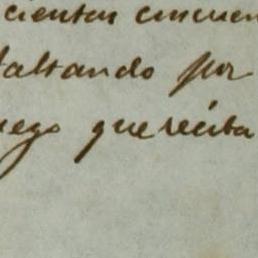 cientos cincuen
faltando por
uego que reciba